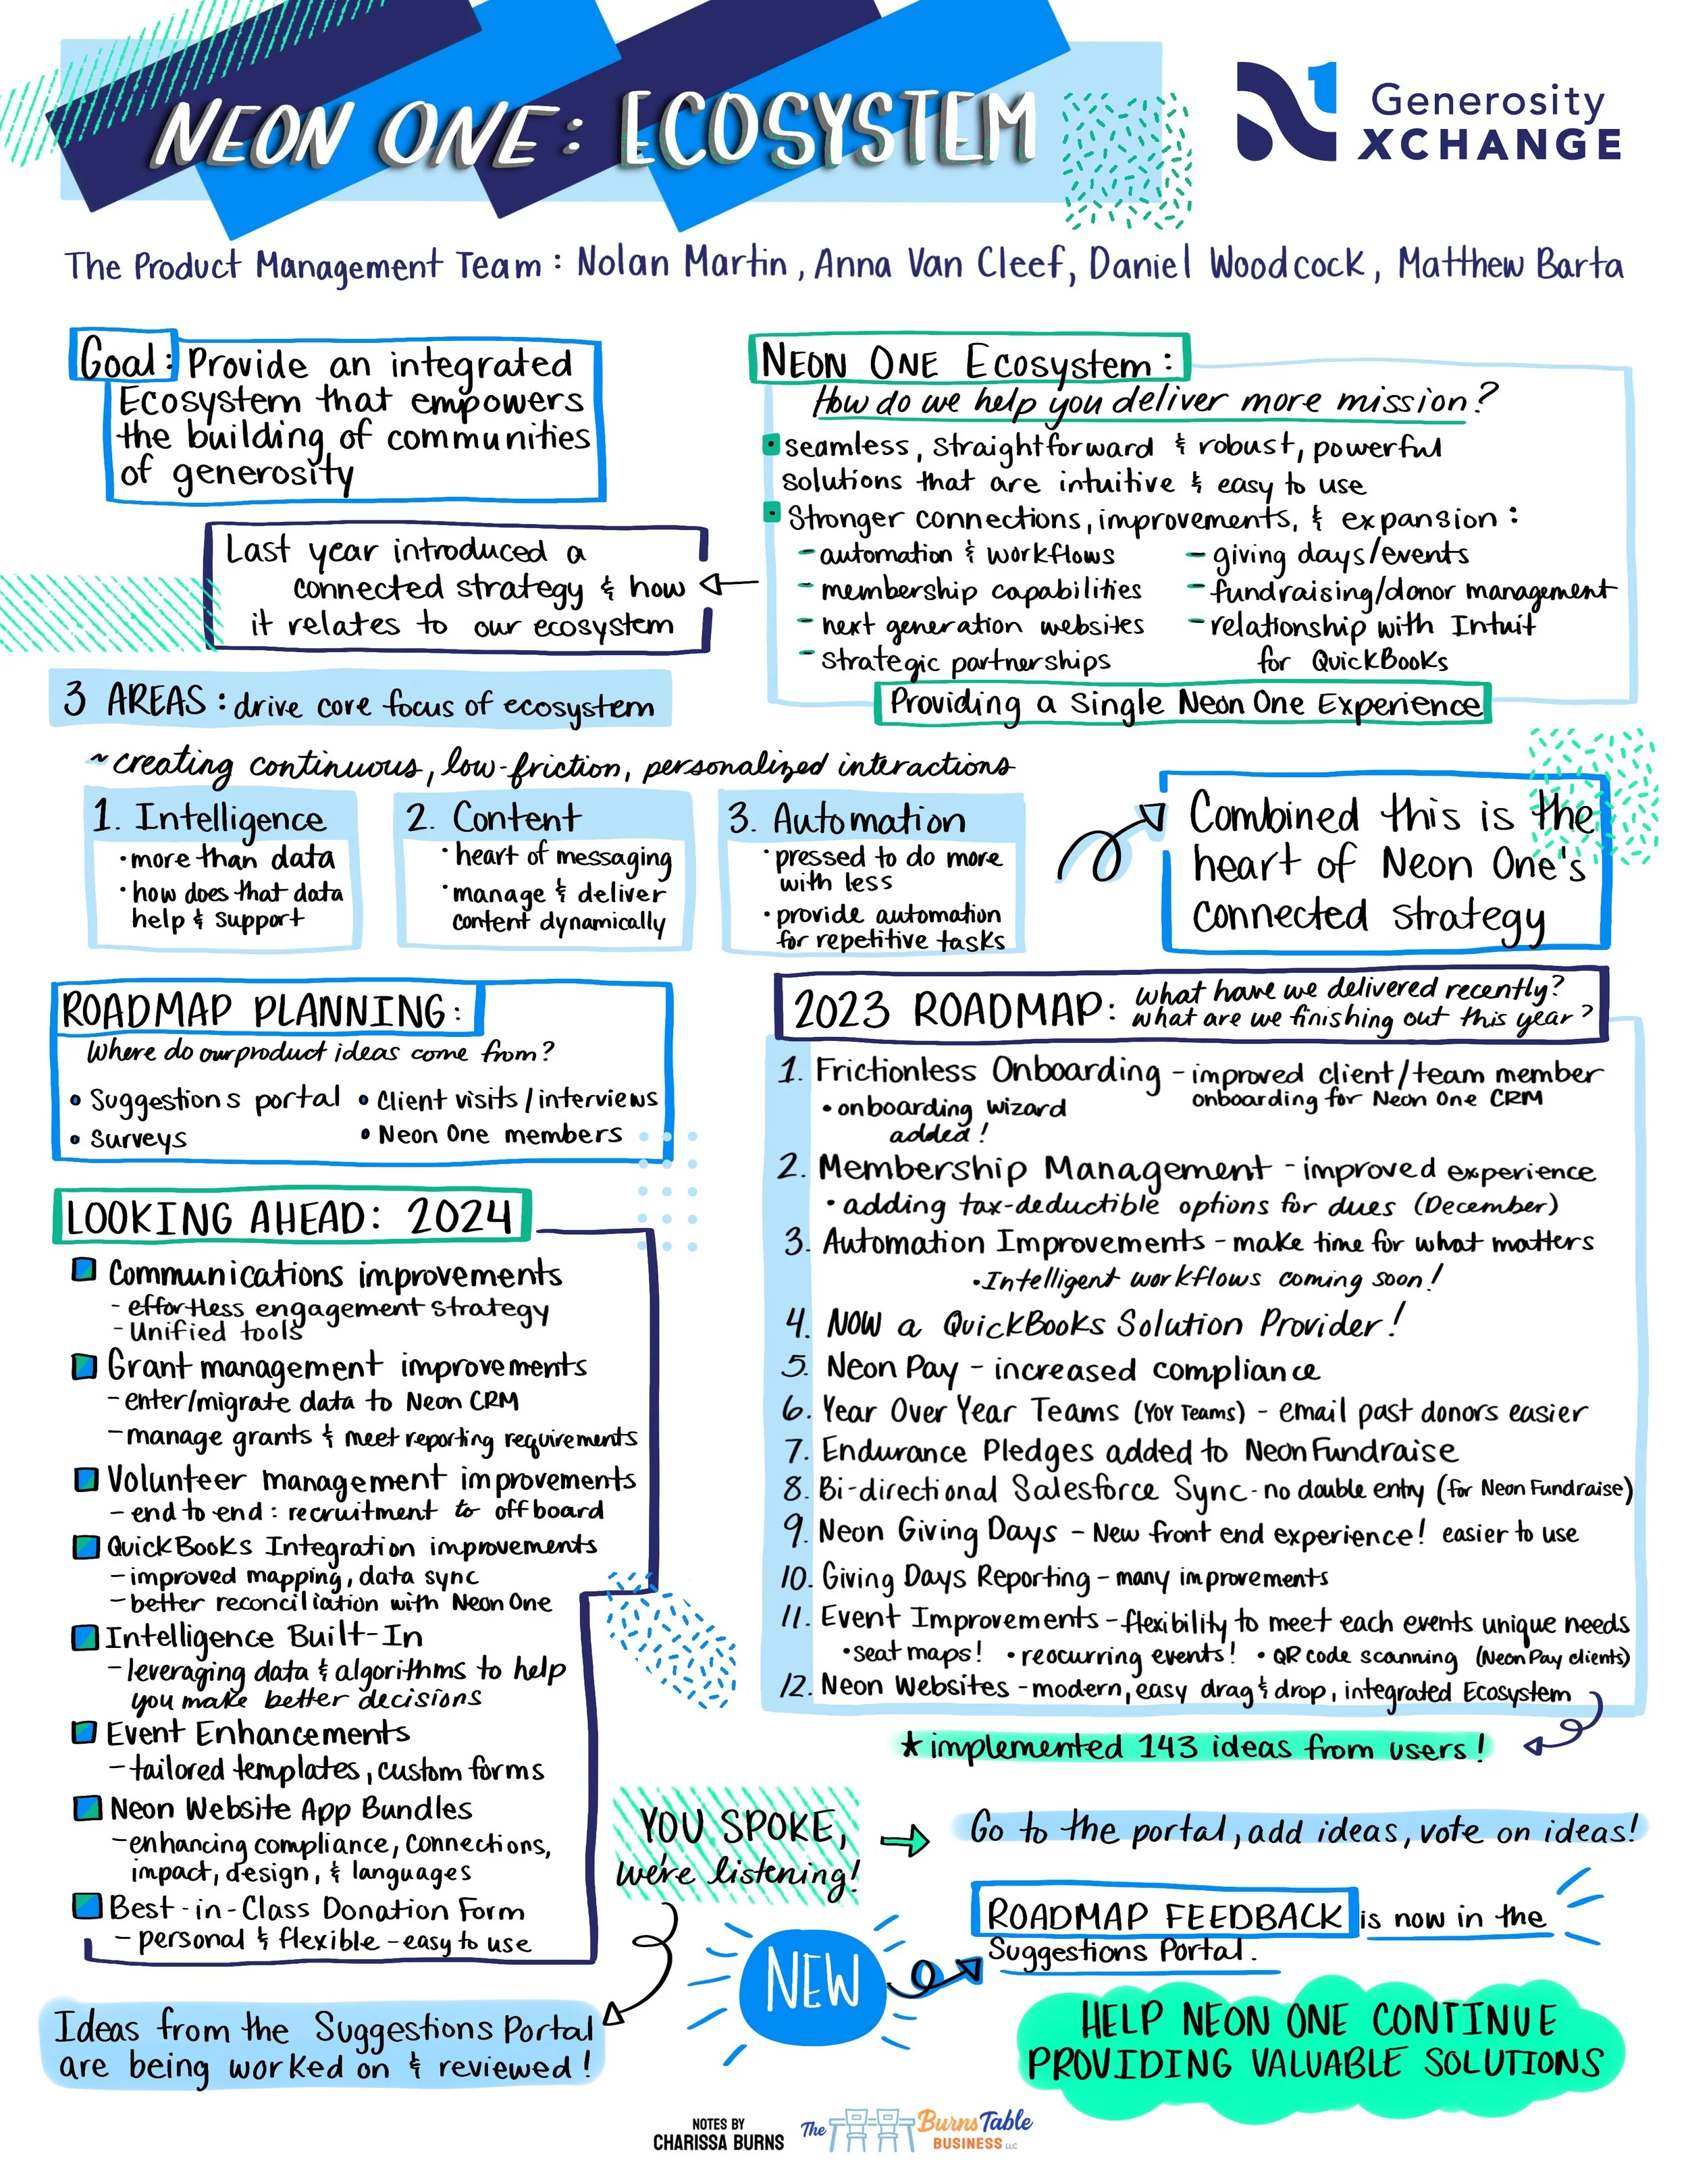 NEON ONE: ECOSYSTEM
Generosity
XCHANGE
The Product Management Team: Nolan Martin, Anna Van Cleef, Daniel Woodcock, Matthew Barta
Goal: Provide an integrated
Ecosystem that empowers
the building of communities
of generosity
Last year introduced a
connected strategy & how
it relates to our ecosystem
NEON ONE Ecosystem:
How do we help you deliver more mission?
• seamless, straightforward & robust, powerful
solutions that are intuitive & easy to use
• Stronger connections, improvements, & expansion:
- automation & workflows
- membership capabilities
- next generation websites
- strategic partnerships
- giving days/events
- fundraising/donor management
- relationship with Intuit
for QuickBooks
Providing a Single Neon One Experience
3 AREAS: drive core focus of ecosystem
~ creating continuous, low-friction, personalized interactions
1. Intelligence
• more than data
• how does that data
help & support
2. Content
• heart of messaging
• manage & deliver
content dynamically
3. Automation
• pressed to do more
with less
• provide automation
for repetitive tasks
Combined this is the
heart of Neon One's
connected strategy
ROADMAP PLANNING:
Where do our product ideas come from?
• Suggestions portal • Client visits/interviews
• Surveys • Neon One members
LOOKING AHEAD: 2024
Communications improvements
- effortless engagement strategy
- Unified tools
Grant management improvements
- enter/migrate data to Neon CRM
- manage grants & meet reporting requirements
Volunteer management improvements
- end to end: recruitment to offboard
QuickBooks Integration improvements
- improved mapping, data sync
- better reconciliation with Neon One
Intelligence Built-In
- leveraging data & algorithms to help
you make better decisions
Event Enhancements
- tailored templates, custom forms
Neon Website App Bundles
- enhancing compliance, connections,
impact, design, & languages
Best-in-Class Donation Form
- personal & flexible - easy to use
2023 ROADMAP: What have we delivered recently?
What are we finishing out this year?
1. Frictionless Onboarding - improved client/team member
onboarding for Neon One CRM
• onboarding wizard
added!
2. Membership Management - improved experience
• adding tax-deductible options for dues (December)
3. Automation Improvements - make time for what matters
• Intelligent workflows coming soon!
4. NOW a QuickBooks Solution Provider!
5. Neon Pay - increased compliance
6. Year Over Year Teams (YOY Teams) - email past donors easier
7. Endurance Pledges added to Neon Fundraise
8. Bi-directional Salesforce Sync - no double entry (for Neon Fundraise)
9. Neon Giving Days - New front end experience! easier to use
10. Giving Days Reporting - many improvements
11. Event Improvements - flexibility to meet each events unique needs
• seat maps! • reocurring events! • QR code scanning (Neon Pay clients)
12. Neon Websites - modern, easy drag & drop, integrated Ecosystem
* implemented 143 ideas from users!
YOU SPOKE,
we're listening!
Go to the portal, add ideas, vote on ideas!
NEW
ROADMAP FEEDBACK is now in the
Suggestions Portal.
Ideas from the Suggestions Portal
are being worked on & reviewed!
HELP NEON ONE CONTINUE
PROVIDING VALUABLE SOLUTIONS
NOTES BY
CHARISSA BURNS
The Burns Table
BUSINESS LLC